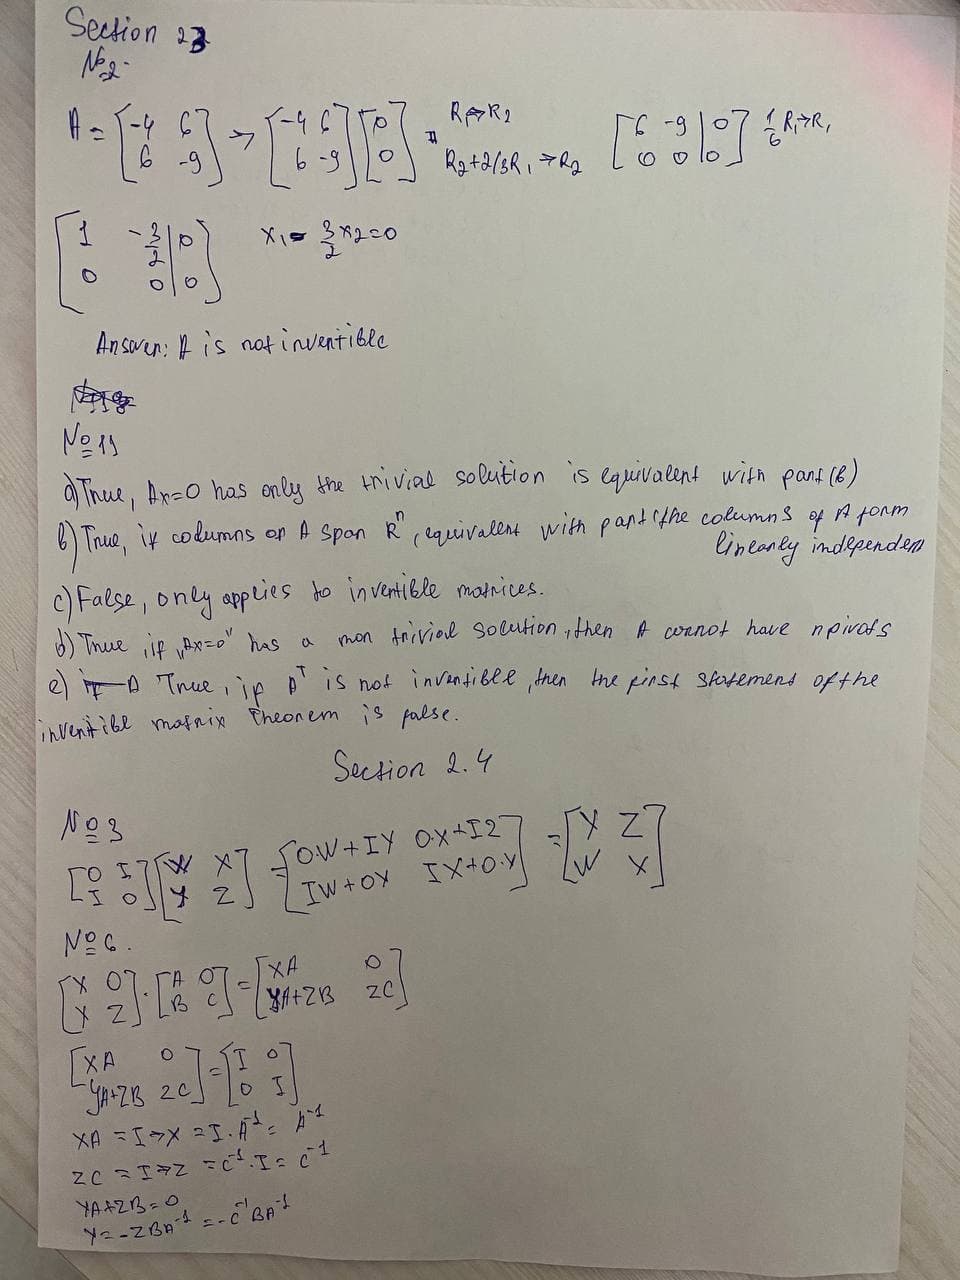 Section 23
№2.
A = [-4 6; 6 -9] → [-4 6; 6 -9] [0; 0] = R1→R2 R2+2/3R1→R2 [6 -9 | 0; 0 0 | 0] 1/6 R1→R1
[1 -3/2 | 0; 0 0 | 0] x1 - 3/2 x2 = 0
Answer: A is not invertible
№11
a) True, Ax=0 has only the trivial solution is equivalent with part (b)
b) True, if columns of A span Rⁿ, equivalent with part (the columns of A form
linearly independent
c) False, only applies to invertible matrices.
d) True, if „Ax=0" has a non trivial solution, then A cannot have n pivots
e) True, if Aᵀ is not invertible, then the first statement of the
invertible matrix theorem is false.
Section 2.4
№3
[0 I; I 0] [W X; Y Z] = [0·W+IY 0·X+IZ; IW+0Y IX+0·Y] = [Y Z; W X]
№6.
[X 0; Y Z] · [A 0; B C] = [XA 0; YA+ZB ZC]
[XA 0; YA+ZB ZC] = [I 0; 0 I]
XA = I → X = I·A⁻¹ = A⁻¹
ZC = I → Z = C⁻¹·I = C⁻¹
YA+ZB=0
Y = -ZBA⁻¹ = -C⁻¹BA⁻¹